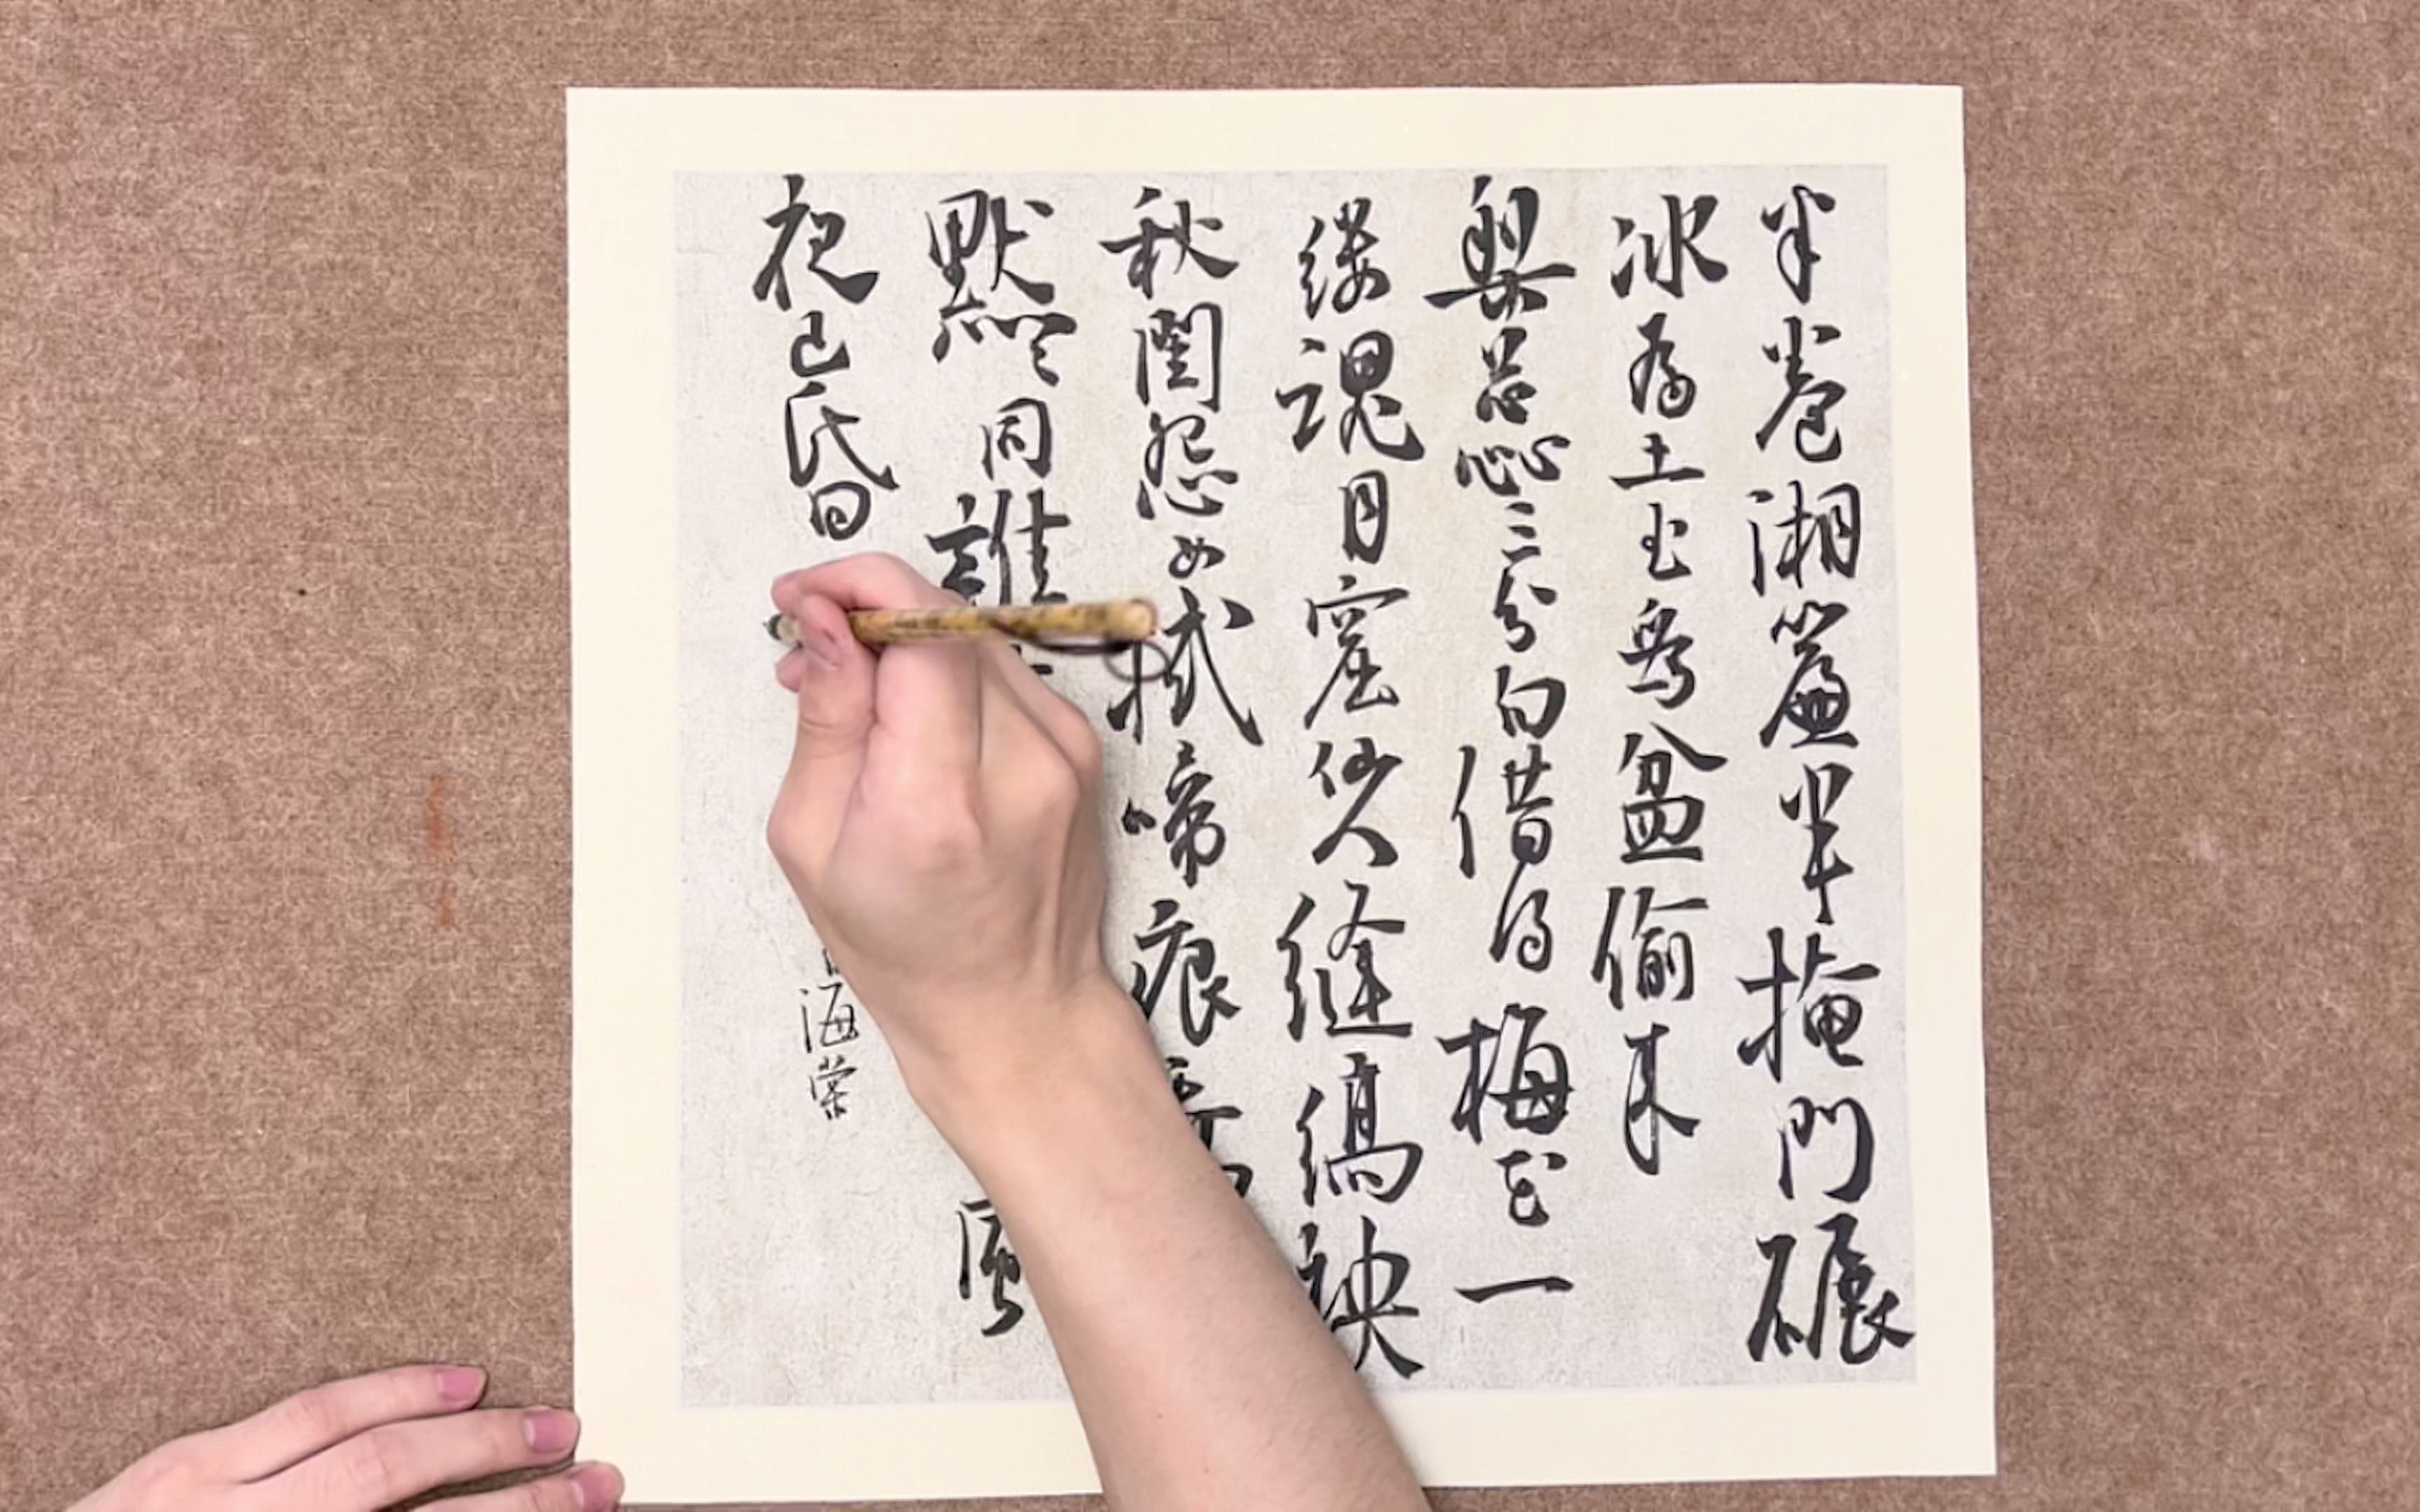 半卷湘簾半掩門碾
冰為土玉為盆偷来
梨蕊三分白借得梅花一
缕魂月窟仙人縫縞袂
秋閨怨女拭啼痕
默々同誰風
夜已昏海棠